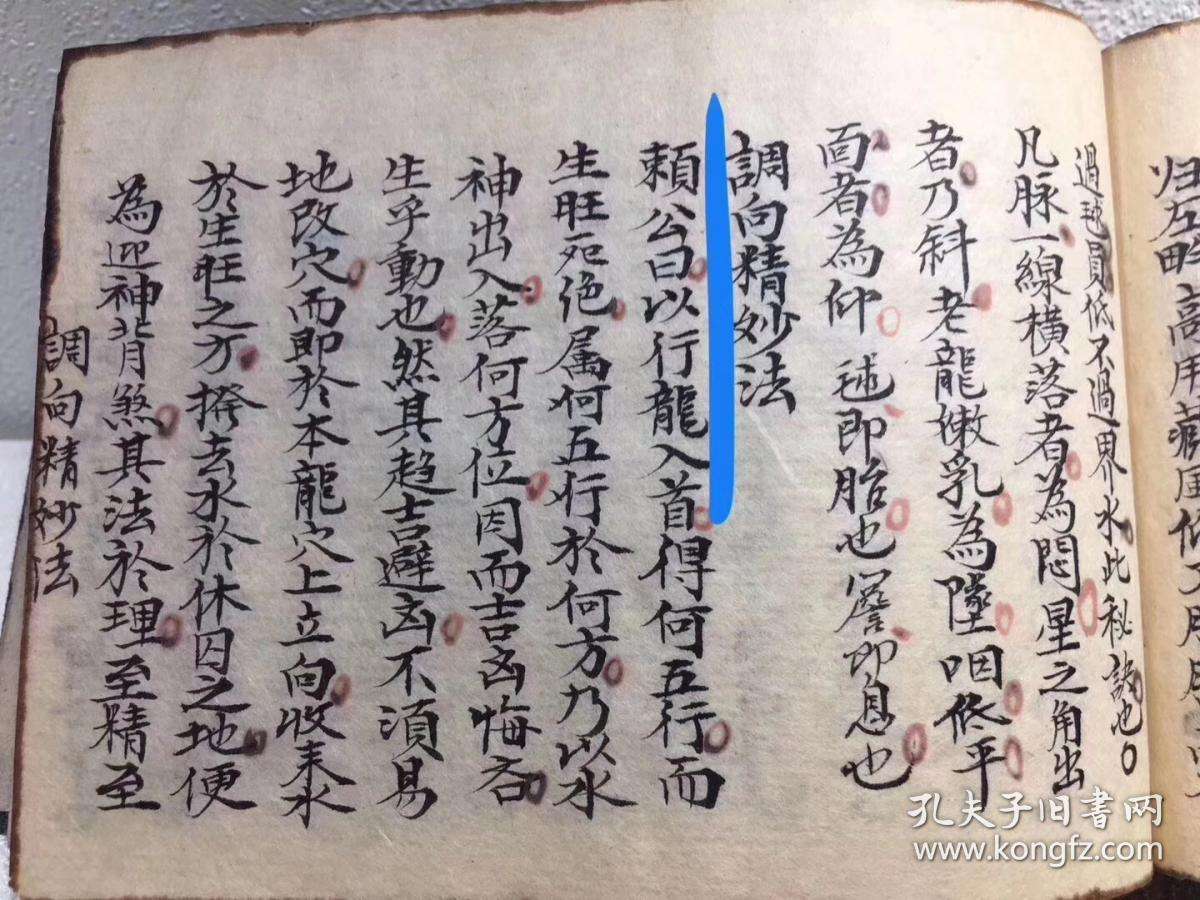 归左畔高用藏風低
過毬員低不過界水此秘訣也
凡脉一線橫落者為悶星之角出
者乃斜老龍嫩乳為墜咽低平
面者為仰毬即胎也簷即息也
調向精妙法
頼公曰以行龍入首得何五行而
生旺死绝属何五行於何方乃以水
神出入落何方位因而吉凶悔吝
生乎動也然其趋吉避凶不須易
地改穴而即於本龍穴上立向收来水
於生旺之方撥去水於休囚之地便
為迎神背煞其法於理至精至
調向精妙法
孔夫子旧书网
www.kongfz.com